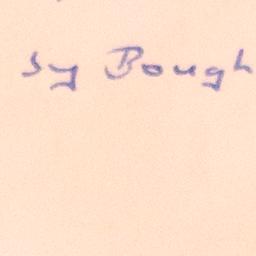 sy Bough